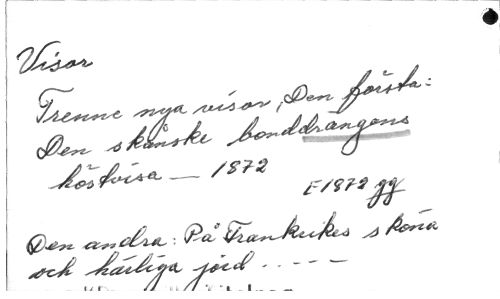 Visor
Trenne nya visor, Den första:
Den skånske bonddrängens
höstvisa — 1872
E1872 gg
Den andra: På Frankrikes sköna
och härliga jord . . - - -